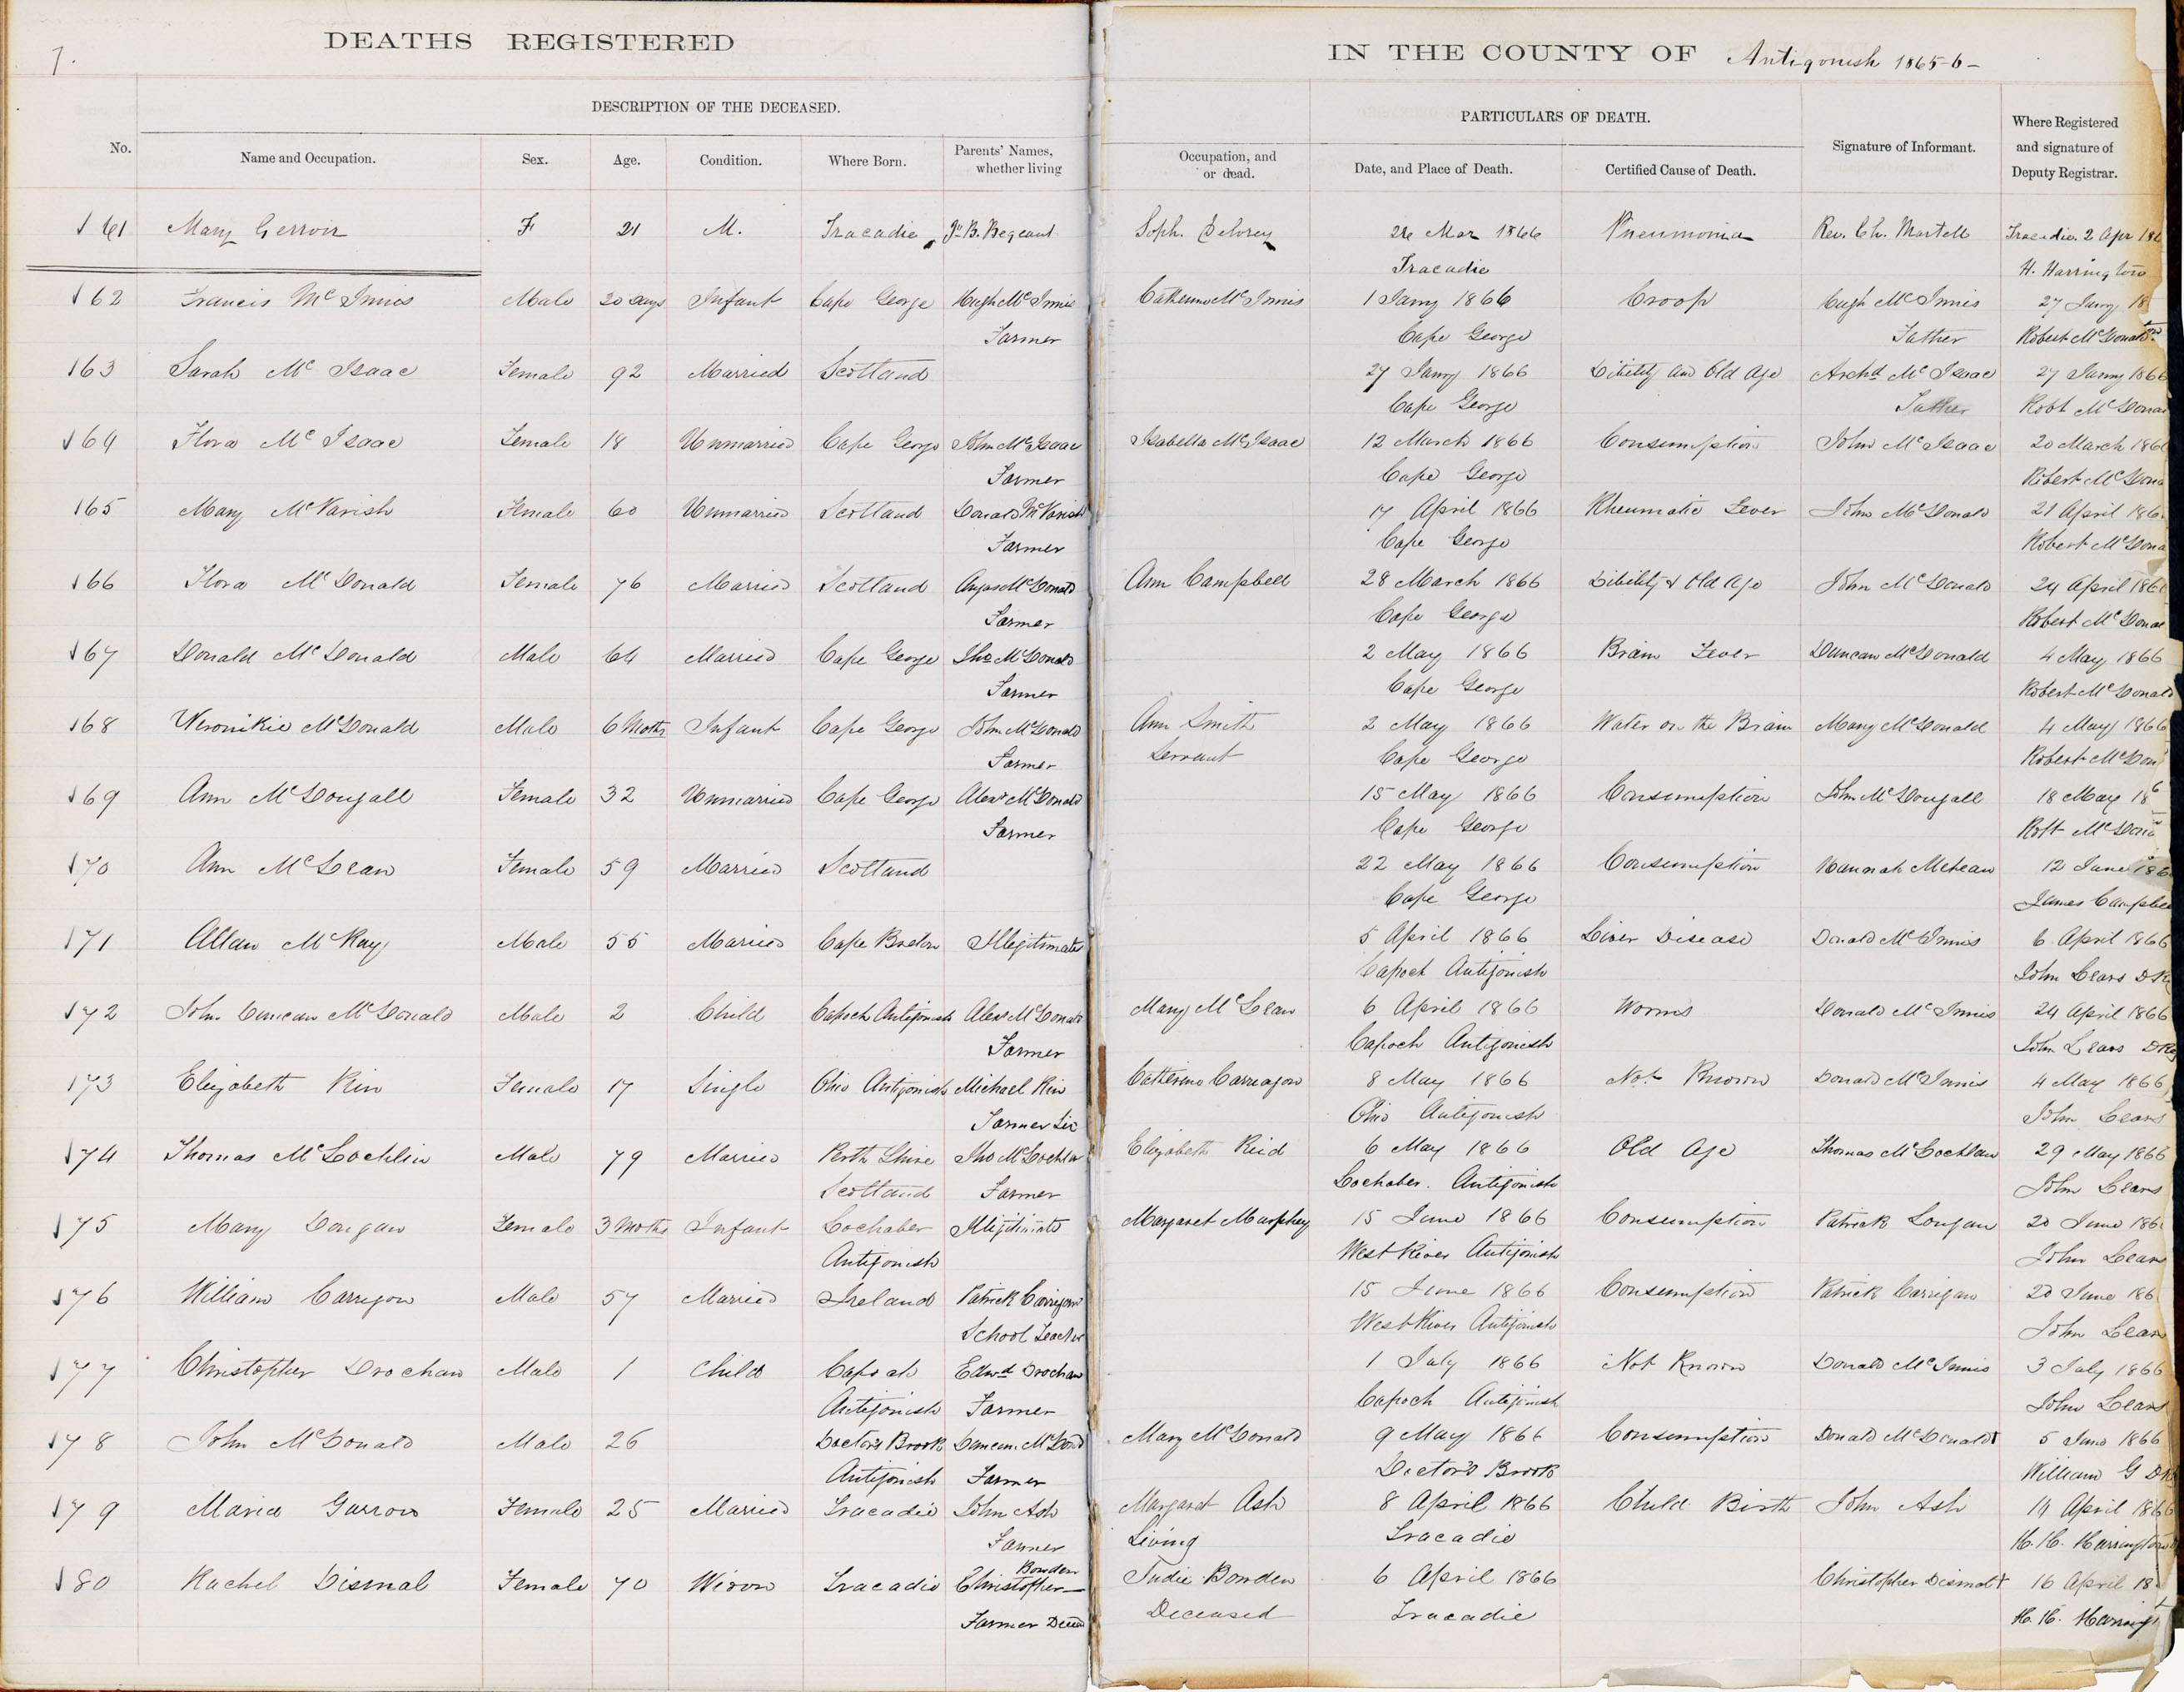 7.
DEATHS REGISTERED
IN THE COUNTY OF Antigonish 1865-6-
DESCRIPTION OF THE DECEASED.
PARTICULARS OF DEATH.
No. Name and Occupation. Sex. Age. Condition. Where Born. Parents' Names, whether living
Occupation, and or dead. Date, and Place of Death. Certified Cause of Death. Signature of Informant. Where Registered and signature of Deputy Registrar.
161 Mary Gerroir F 21 M. Tracadie J. B. Soph. Delorey 24 Mar 1866 Pneumonia Rev. Ch. Martell Tracadie, 2 Apr
Tracadie H. Harrington
162 Francis McInnis Male 20 days Infant Cape George Hugh McInnis Catherine McInnis 1 Jany 1866 Croop Hugh McInnis 27 Jany 18
Farmer Cape George Father Robert McDonald
163 Sarah McIsaac Female 92 Married Scotland 27 Jany 1866 Dibility and Old Age Archd McIsaac 27 Jany 1866
Cape George Father Robt McDona
164 Flora McIsaac Female 18 Unmarried Cape George John McIsaac Isabella McIsaac 12 March 1866 Consumption John McIsaac 20 March 186
Farmer Cape George Robert McDona
165 Mary McVarish Female 60 Unmarried Scotland Donald McVarish 17 April 1866 Rheumatic Fever John McDonald 21 April 186
Farmer Cape George Robert McDona
166 Flora McDonald Female 76 Married Scotland Angus McDonald Ann Campbell 28 March 1866 Dibility & Old Age John McDonald 24 April 186
Farmer Cape George Robert McDona
167 Donald McDonald Male 64 Married Cape George Jho McDonald 2 May 1866 Brain Fever Duncan McDonald 4 May 1866
Farmer Cape George Robert McDonald
168 Weronikie McDonald Male 6 Moths Infant Cape George John McDonald Ann Smith 2 May 1866 Water on the Brain Mary McDonald 4 May 1866
Farmer Servant Cape George Robert McDon
169 Ann McDougall Female 32 Unmarried Cape George Alexr McDonald 15 May 1866 Consumption John McDougall 18 May 186
Farmer Cape George Robt McDona
170 Ann McLean Female 59 Married Scotland 22 May 1866 Consumption Hannah McLean 12 June 186
Cape George James Campbel
171 Allan McKay Male 55 Married Cape Breton Illegitimate 5 April 1866 Liver Disease Donald McInnis 6 April 1866
Capoch Antigonish John Sears DR
172 John Duncan McDonald Male 2 Child Capoch Antigonish Alexr McDonald Mary McLean 6 April 1866 Worms Donald McInnis 24 April 1866
Farmer Capoch Antigonish John Sears DR
173 Elizabeth Kin Female 17 Single Ohio Antigonish Michael Kin Catherine Carragon 8 May 1866 Not Known Donald McInnis 4 May 1866
Farmer Liv Ohio Antigonish John Sears
174 Thomas McLochlin Male 79 Married Perth Shire Jho McLochlin Elizabeth Reid 6 May 1866 Old Age Thomas McLochlan 29 May 1866
Scotland Farmer Lochaber. Antigonish John Sears
175 Mary Dougan Female 3 Moths Infant Lochaber Illigitimate Margaret Murphey 15 June 1866 Consumption Patrick 20 June 186
Antigonish West River Antigonish John Sears
176 William Carrigon Male 57 Married Ireland Patrick Carrigon 15 June 1866 Consumption Patrick Carrigan 20 June 186
School Teacher West River Antigonish John Sears
177 Christopher Drochan Male 1 Child Capoch Edwd Drochan 1 July 1866 Not Known Donald McInnis 3 July 1866
Antigonish Farmer Capoch Antigonish John Sears
178 John McDonald Male 26 Doctors Brook Duncan McDonald Mary McDonald 9 May 1866 Consumption Donald McDonald 5 June 1866
Antigonish Farmer Doctors Brook William G
179 Maria Garrow Female 25 Married Tracadie John Ash Margaret Ash 8 April 1866 Child Birth John Ash 14 April 1866
Farmer Living Tracadie H. H. Harrington
180 Rachel Dismal Female 70 Widow Tracadie Christopher Bowden Judie Bowden 6 April 1866 Christopher Dismal 16 April 18
Farmer Decd Deceased Tracadie H. H. Harringt